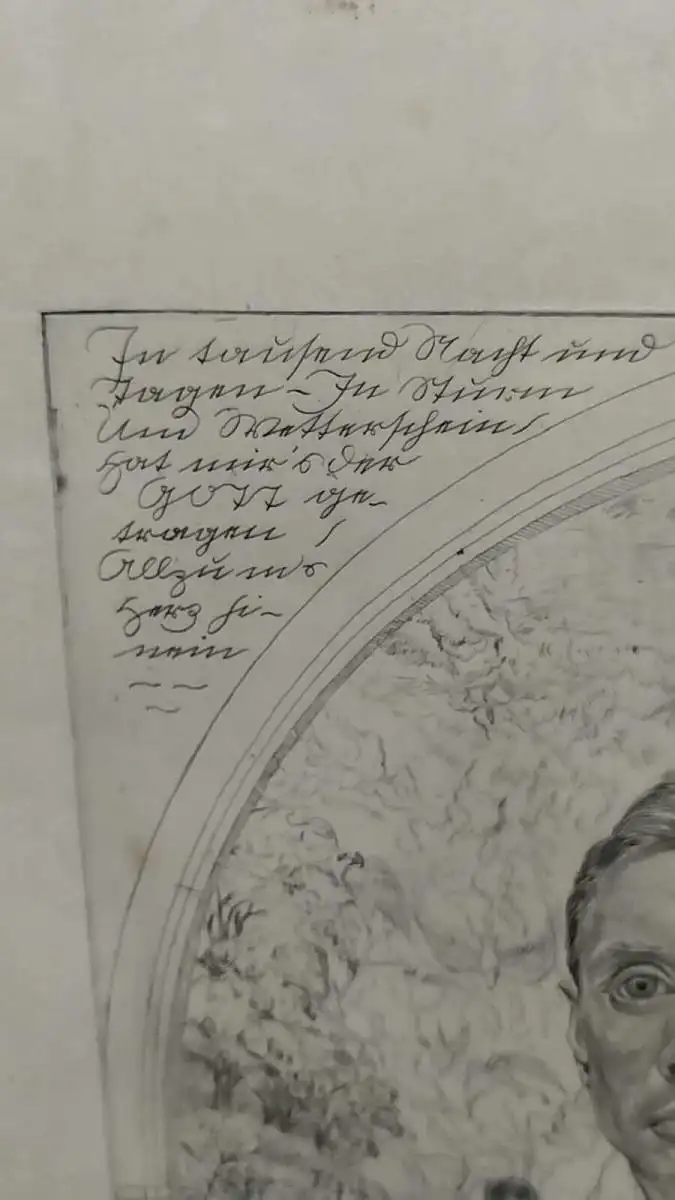 In tausend Nacht und
Tagen – In Sturm
Und Wetterschein/
hat mir's der
GOTT ge-
tragen /
Allzu ins
Herz hi-
nein